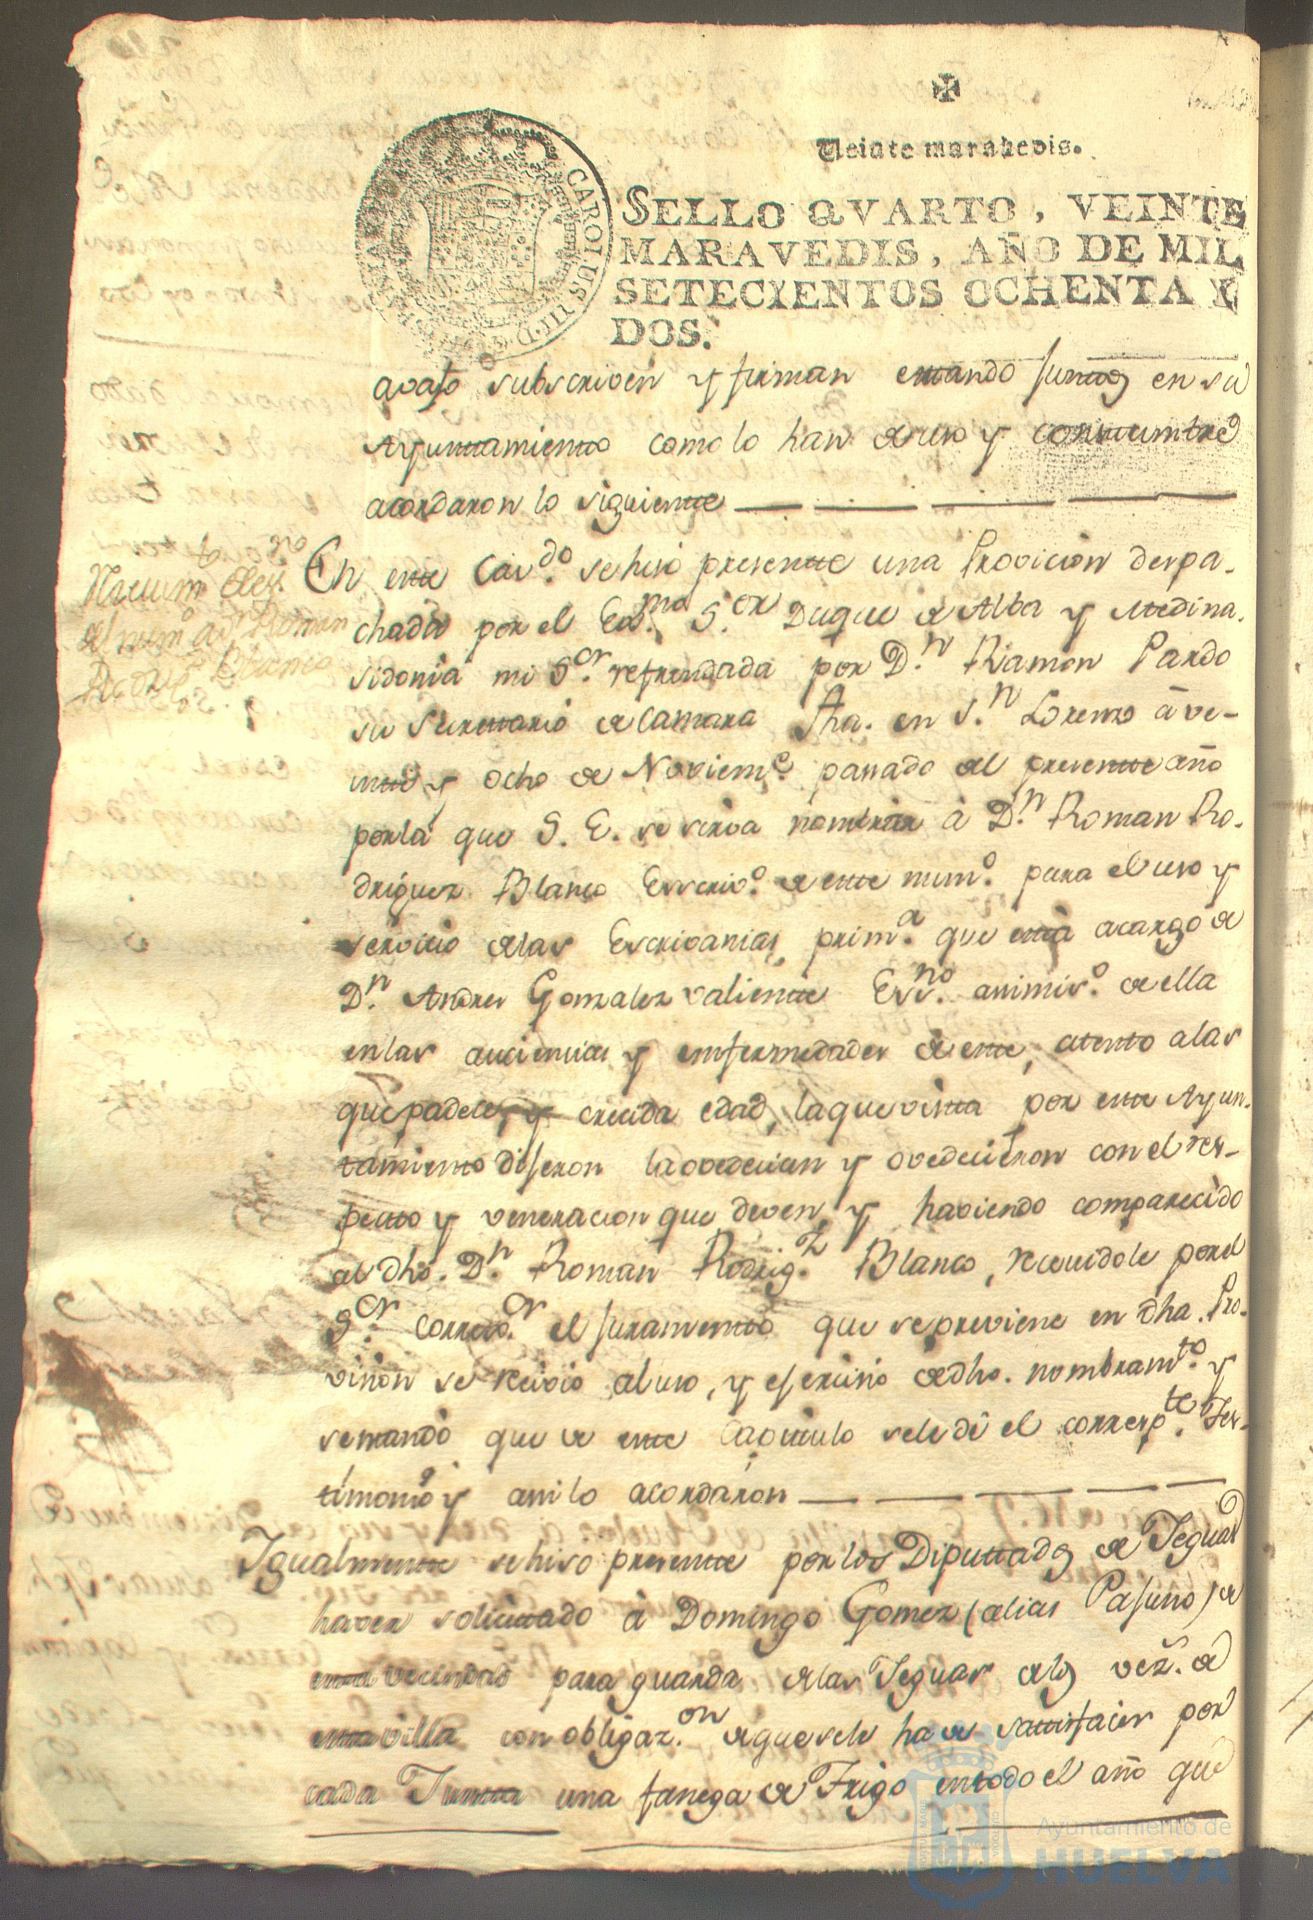 Veinte maravedis.
SELLO QVARTO, VEINTE
MARAVEDIS, AÑO DE MIL
SETECIENTOS OCHENTA Y
DOS.
CAROLUS III D
avajo subscriven y firman estando juntos en su
Ayuntamiento como lo han de uso y costumbre
acordaron lo siguiente
En este Cav.do se hiso presente una Provicion despa-
chada por el Exmo. S.or Duque de Alba y Medina
sidonia mi S.or refrendada por D.n Ramon Pardo
su Secretario de Camara fha. en S.n Lorenzo à ve-
inte y ocho de Noviem.e pasado del presente año
por la que S. E. se sirva nombrar à D.n Roman Ro-
driguez Blanco Escriv.o de este num.o para el uso y
servicio de las Escrivanias prim.a que està a cargo de
D.n Andres Gonzalez Valiente Ess.no asimis.o de ella
en las aucencias y enfermedades de este, atento a las
que padece, y crecida edad, la que vista por este Ayun-
tamiento dijeron la ovedecian y ovedecieron con el res-
pecto y veneracion que deven, y haviendo comparecido
el dho. D.n Roman Rodrig.z Blanco, recivídole por el
S.or Correg.or el juramento que se previene en dha. Pro-
vision se recivio al uso, y ejercicio de dho. nombram.to y
se mandó que de este Capitulo se le dé el corresp.te Tes-
timonio y asi lo acordaron
Igualmente se hiso presente por los Diputados de Yeguas
haver solicitado à Domingo Gomez (alias Pasuno) de
esta vecindad para guarda de las Yeguas de los vez.s de
esta villa con obligaz.on de que se le ha de satisfacer por
cada Junta una fanega de Trigo en todo el año que
Ayuntamiento de
HUELVA